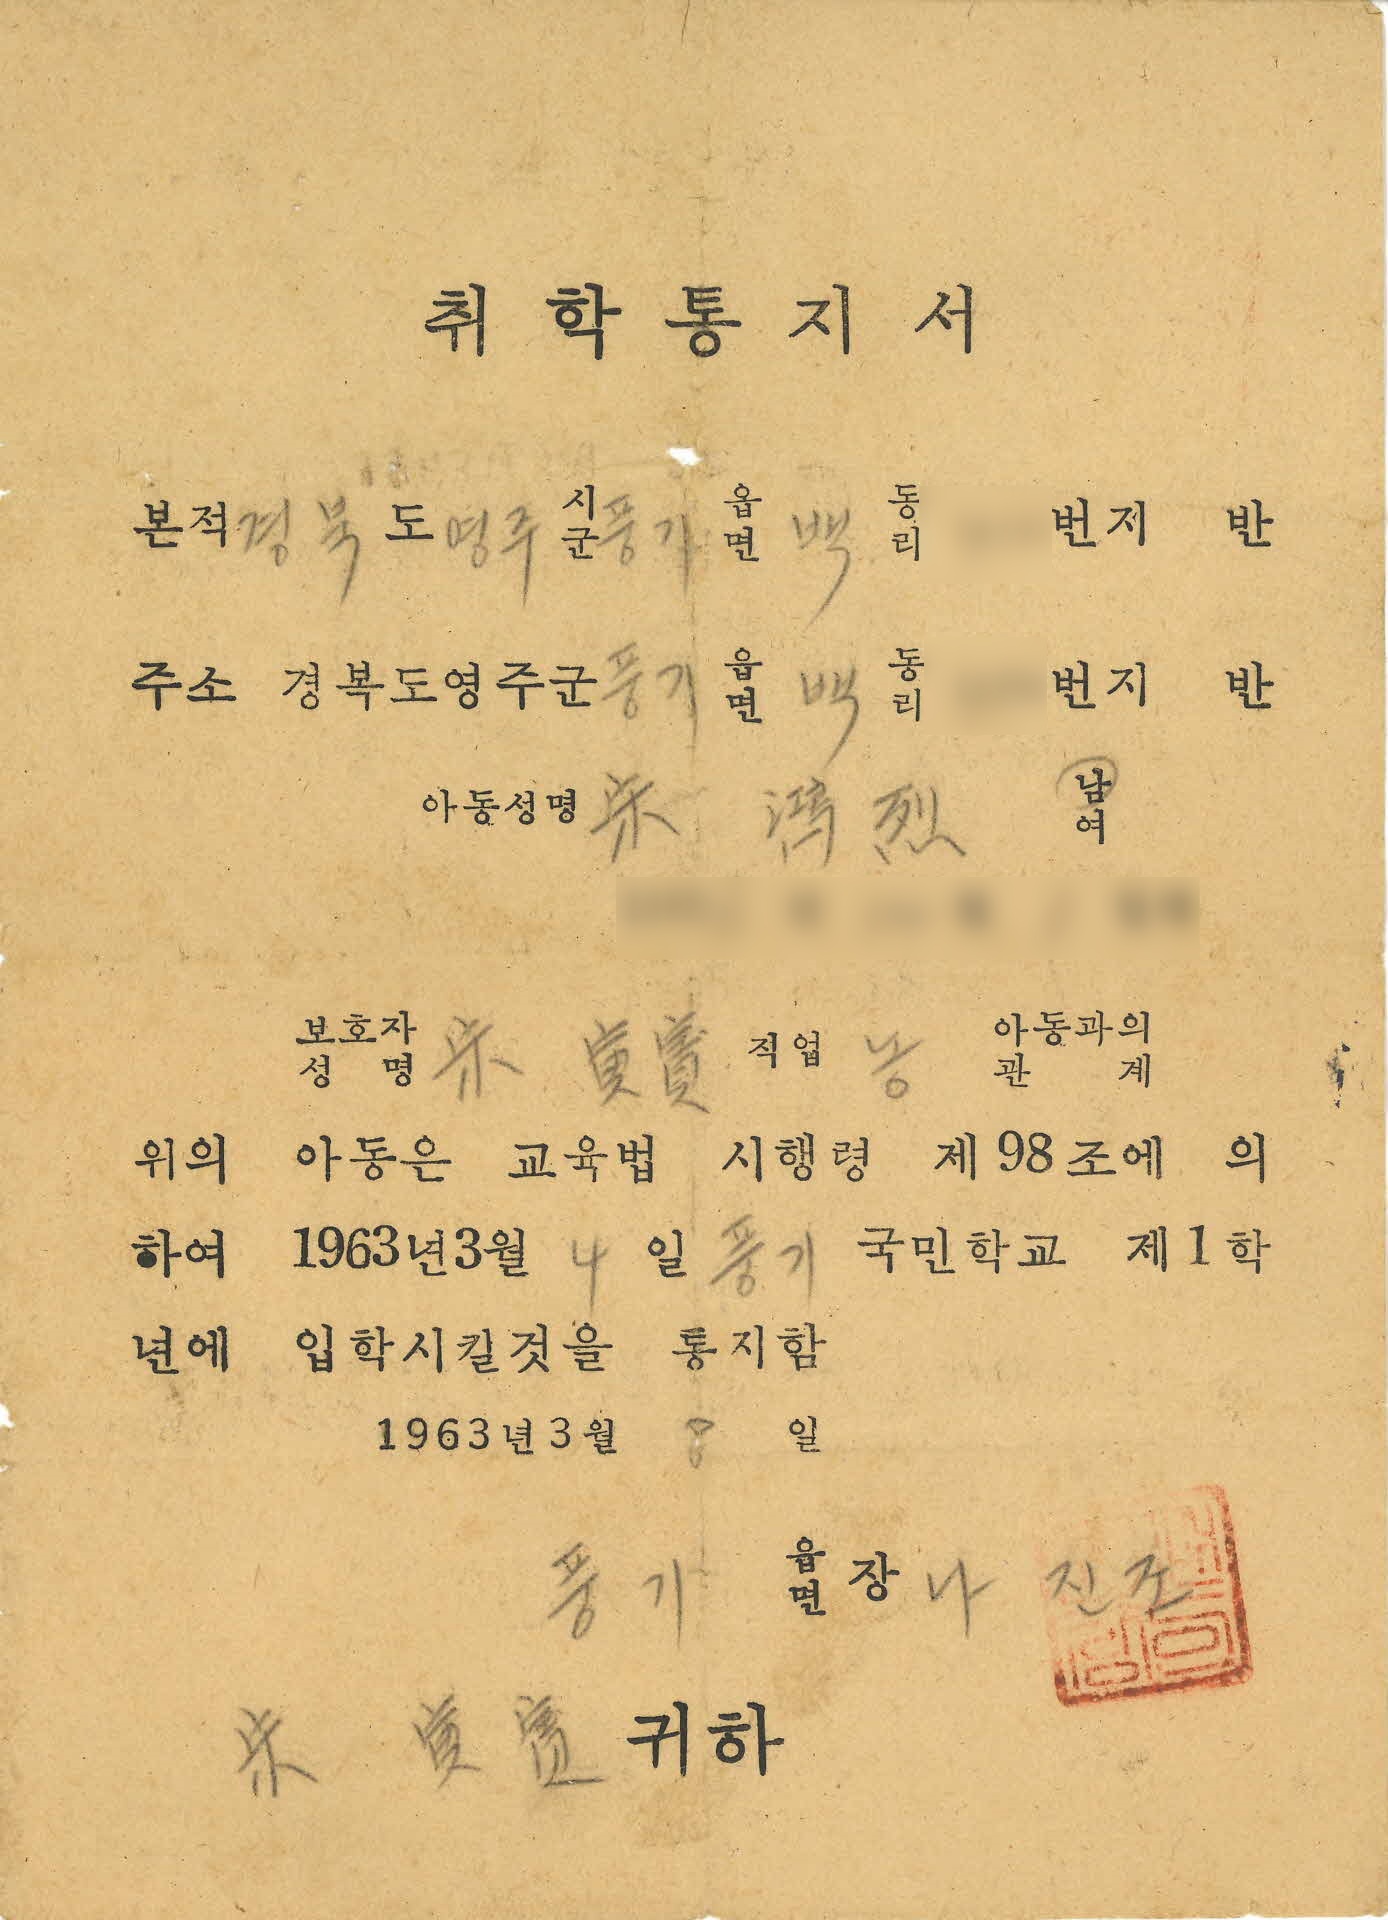 취학통지서
본적 경북 도 영주 시군 풍기 읍면 백 동리 번지 반
주소 경북도영주군 풍기 읍면 백 동리 번지 반
아동성명 宋 鴻烈 남여
보호자성명 宋 직업 농 아동과의관계
위의 아동은 교육법 시행령 제98조에 의
하여 1963년3월 4 일 풍기 국민학교 제1학
년에 입학시킬것을 통지함
1963년3월 8 일
풍기 읍면장 나 진조
宋 귀하